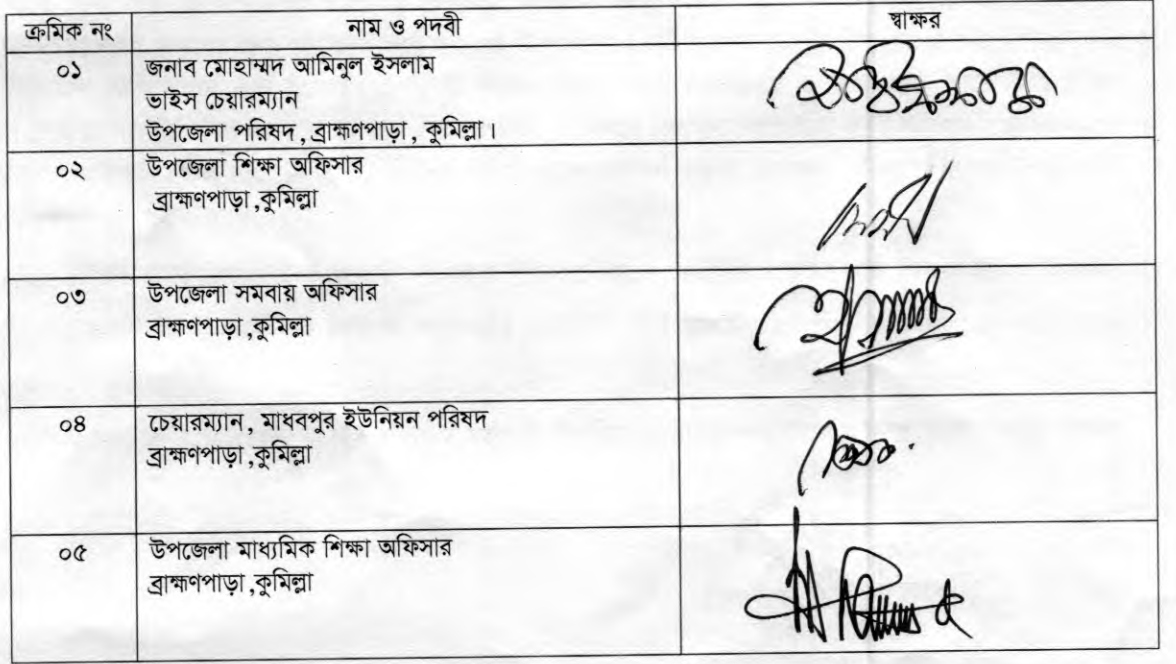 ক্রমিক নং নাম ও পদবী স্বাক্ষর
০১ জনাব মোহাম্মদ আমিনুল ইসলাম
ভাইস চেয়ারম্যান
উপজেলা পরিষদ, ব্রাহ্মণপাড়া, কুমিল্লা।
০২ উপজেলা শিক্ষা অফিসার
ব্রাহ্মণপাড়া,কুমিল্লা
০৩ উপজেলা সমবায় অফিসার
ব্রাহ্মণপাড়া,কুমিল্লা
০৪ চেয়ারম্যান, মাধবপুর ইউনিয়ন পরিষদ
ব্রাহ্মণপাড়া,কুমিল্লা
০৫ উপজেলা মাধ্যমিক শিক্ষা অফিসার
ব্রাহ্মণপাড়া,কুমিল্লা